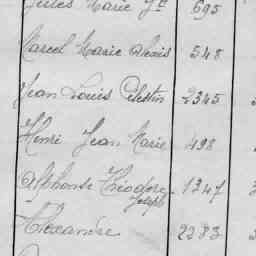 Jules Marie Je 695
Marcel Marie Alexis 548
Jean Louis Célestin 2345
Henri Jean Marie 498
Alphonse Théodore 1247
Joseph
Alexandre 2283